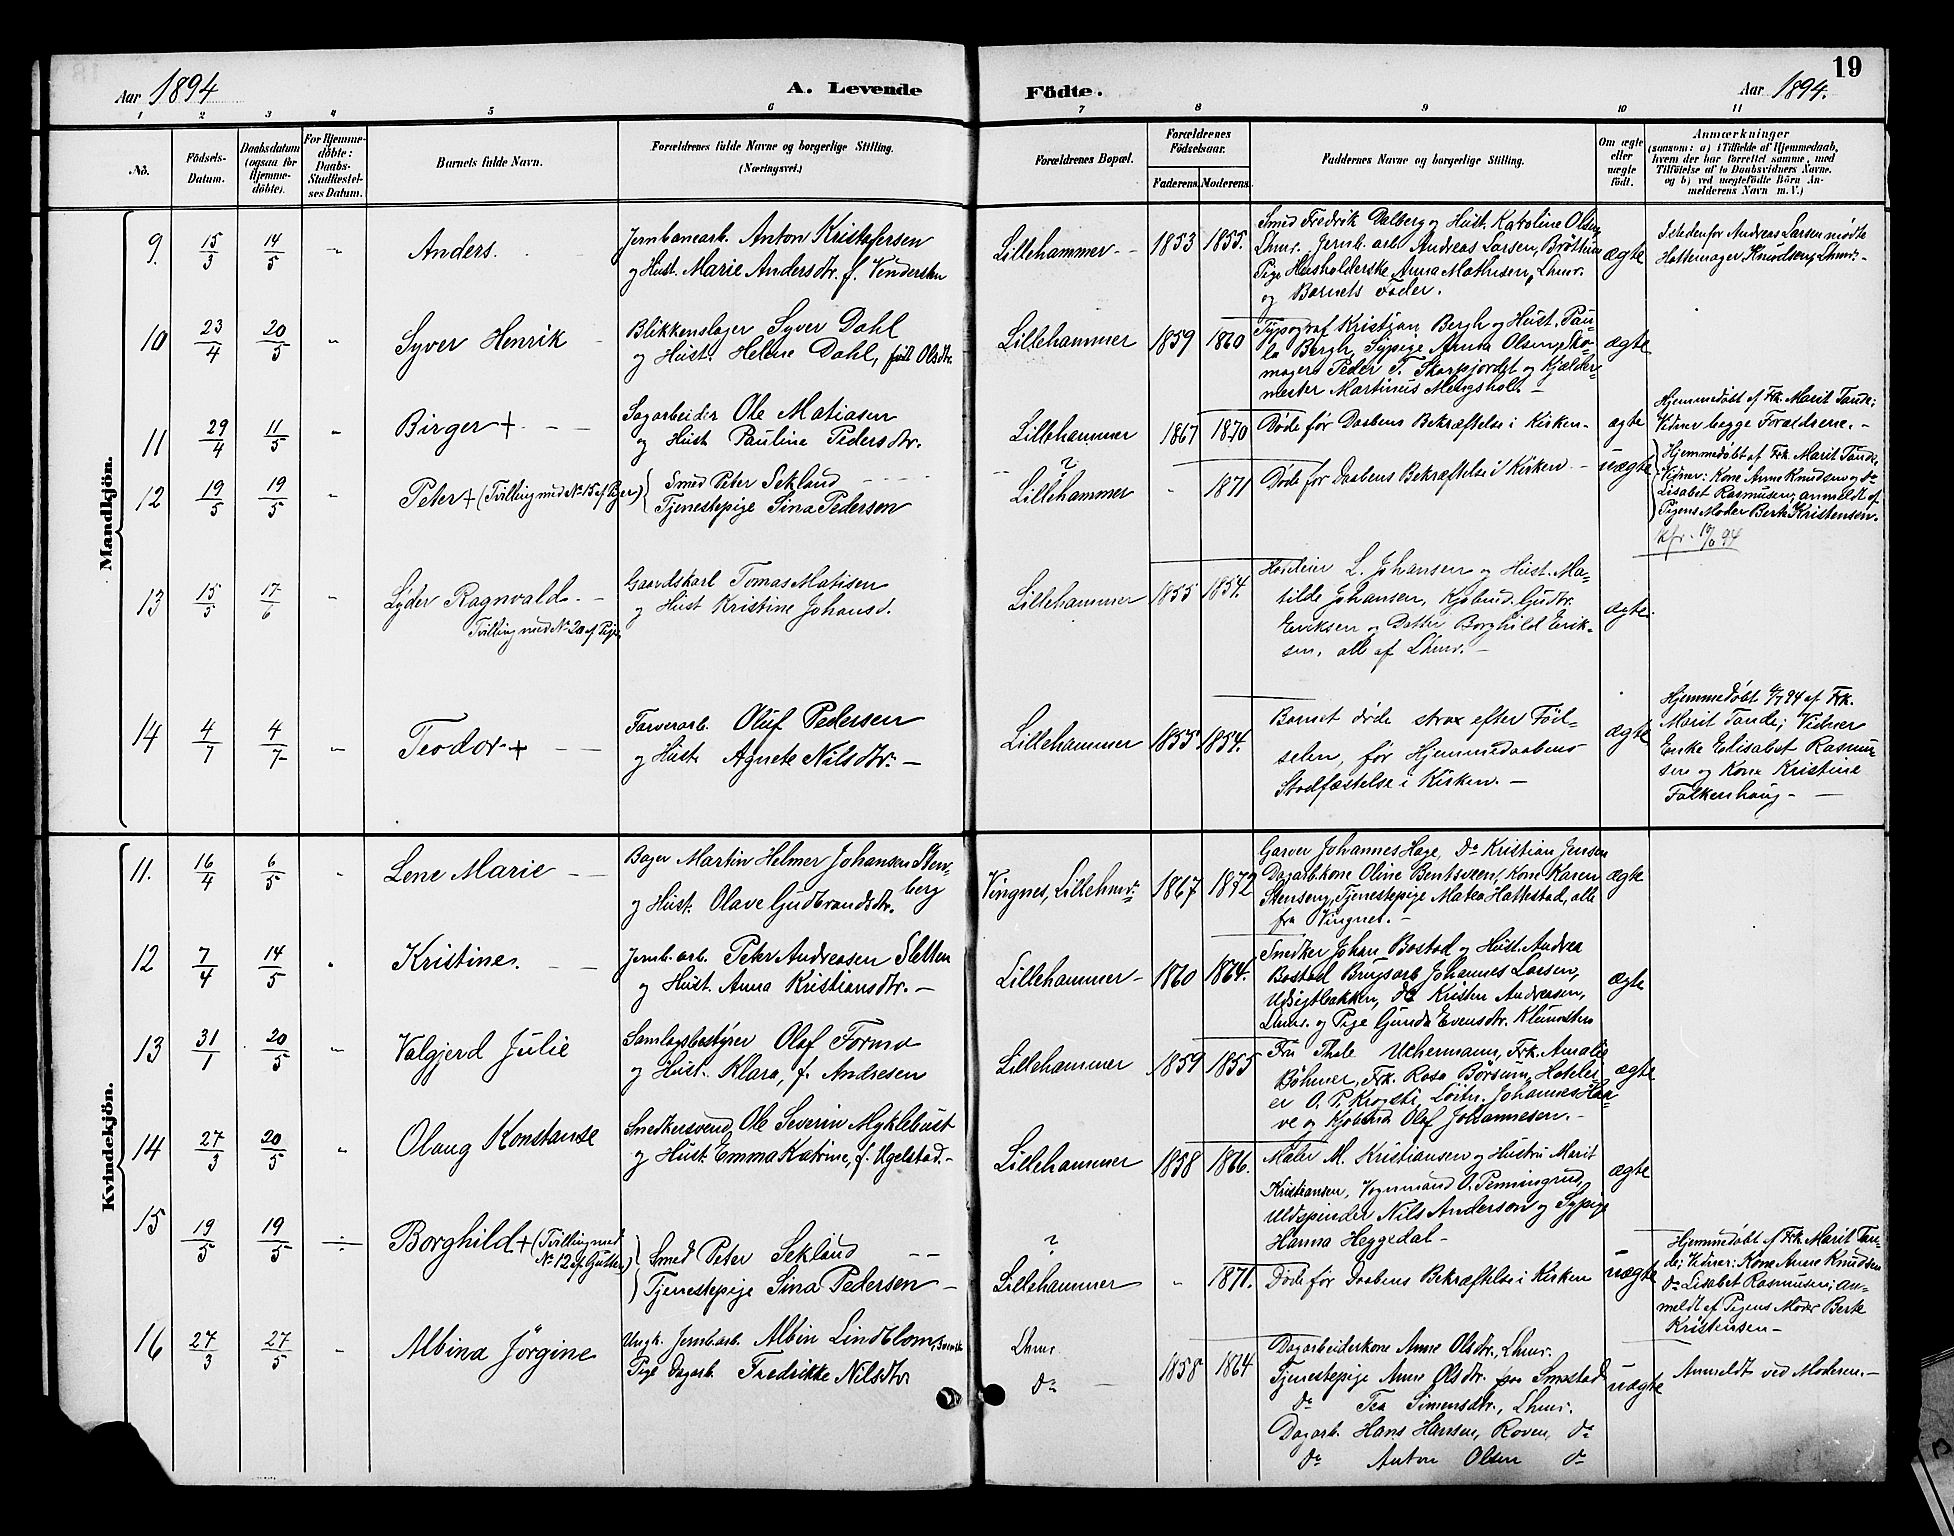 19
Aar 1894
A. Levende Födte.
Aar 1894.
1 2 3 4 5 6 7 8 9 10 11
No.
Födsels-
Datum.
Daabsdatum
(ogsaa for
Hjemme-
döbte).
For Hjemme-
döbte:
Daabs-
Stadfæstel-
ses Datum.
Barnets fulde Navn.
Forældrenes fulde Navne og borgerlige Stilling.
(Næringsvei.)
Forældrenes Bopæl.
Forældrenes
Födselsaar.
Faderens. Moderens.
Faddernes Navne og borgerlige Stilling.
Om ægte
eller
uægte
födt.
Anmærkninger
(saasom: a) i Tilfælde af Hjemmedaab,
hvem der har forrettet samme, med
Tilföielse af to Daabsvidners Navne.
og b) ved uægtefödte Börn An-
melderens Navn m. V.)
Mandkjön.
9. 15/3 14/5 „ Anders.
Jernbanearb. Anton Kristofersen
og Hust. Marie Andersdtr. f.
Lillehammer 1853 1855.
Smed Fredrik Dalberg og Hust. Karoline Olsen
Lhmr. Jernb.arb. Andreas Larsen,
Pige Husholderske Anna Mathisen, Lhmr.
og Barnets Fader.
ægte
Istedenfor Andreas Larsen mödte
Hattemager Knudsen, Lhmr.
10 23/4 20/5 „ Syver Henrik
Blikkenslager Syver Dahl
og Hust. Helene Dahl, født Olsdtr.
Lillehammer 1859 1860
Typograf Kristian Bergh og Hust. Pau-
la Bergh, Sypige Anna Olsen, Sko-
mager Peder T. Skarpjordet og Kjælder-
mester Martinus Mengshol.
ægte
11 29/4 11/5 „ Birger +
Sagarbeider Ole Matiasen
og Hust Pauline Pedersdtr.
Lillehammer 1867 1870
Døde før Daabens Bekræftelse i Kirken
ægte
Hjemmedøbt af Frk. Marit Tande;
Vidner begge Forældrene.
12 19/5 19/5 „ Peter + (Tvilling med No 15 af Piger)
Smed Peter Sekland
Tjenestepige Sina Pedersen
?
Lillehammer „ 1871
Døde før Daabens Bekræftelse i Kirken
uægte
Hjemmedøbt af Frk. Marit Tande,
Vidner: Kone Anne Knudsen og do
Lisabet Rasmusen, anmeldt af
Pigens Moder Berte Kristensen.
13 15/5 17/6 „ Lyder Ragnvald.
Tvilling med No 20 af Piger
Gaardskarl Tomas Matisen
og Hust Kristine Johansd.
Lillehammer 1855 1854.
L. Johansen og Hust. Ma-
tilde Johansen, Kjøbmd. Gudbr.
Eriksen og Datter Borghild Erik-
sen, alle af Lhmr.
ægte.
14 4/7 4/7 „ Teodor +
Farverarb. Oluf Pedersen
og Hust. Agnete Nilsdtr.
Lillehammer 1855 1854.
Barnet døde strax efter Fød-
selen, før Hjemmedaabens
Stadfæstelse i Kirken.
ægte
Hjemmedøbt 4/7 94 af Frk.
Marit Tande; Vidner
Enke Elisabet Rasmu-
sen og Kone Kristine
Falkenhaug
Kvindekjön.
11. 16/4 6/5 „ Lene Marie
Bager Martin Helmer Johansen Sten-
berg
og Hust. Olave Gudbrandsdtr.
Vingnes, Lillehmr. 1867 1872
Garver Johannes Hage, do Kristian Jensen
Dagarb.kone Oline Bentsveen, Kone Karen
Stenseng, Tjenestepige Matea Hattestad, alle
fra Vingnes.
ægte
12 7/4 14/5 „ Kristine.
Jernb.arb. Peter Andreasen Sletten
og Hust. Anna Kristiansdtr.
Lillehammer 1860 1864.
Snedker Johan Bostad og Hust. Andrea
Bostad Brugsarb Johannes Larsen,
Udsigtbakken, do Kristen Andreasen,
Lhmr. og Pige Gunda Evensdtr.
ægte
13 31/1 20/5 „ Valgjerd Julie
Samlagsbestyrer Olaf Formo
og Hust. Klara, f. Andresen
Lillehammer 1859 1855
Fru Thale Uchermann, Frk. Amalie
Bøhmer, Frk. Rosa Börsum, Hotelei-
er O. P. Løitn. Johannes Haa-
ve og Kjøbmd Olaf Johannesen.
ægte
14 27/3 20/5 „ Olaug Konstanse
Snedkersvend Ole Severin Myklebust
og Hust. Emma Katrine, f. Ugelstad.
Lillehammer 1858 1866.
Maler M. Kristiansen og Hustru Marit
Kristiansen, Vognmand O. Penningrud,
Uldspinder Nils Anderson og Sypige
Hanna Heggedal
ægte
15 19/5 19/5 Borghild + (Tvilling med
No 12 af Gutter)
Smed Peter Sekland
Tjenestepige Sina Pedersen
?
Lillehammer „ 1871.
Døde før Daabens Bekræftelse i Kirken
uægte
Hjemmedøbt af Frk Marit Tan-
de; Vidner: Kone Anne Knudsen
do Lisabet Rasmusen; an-
meldt af Pigens Moder Berte
Kristensen
16 27/3 27/5 „ Albina Jörgine
Ungk. Jernb.arb. Albin Lindblom, Svensk
Pige Dagarb. Fredrikke Nilsdtr
Lhmr.
do
1858 1864
Dagarbeiderkone Anne Olsdtr., Lhmr.
Tjenestepige Anne Olsdtr. fra Smestad
do Tea Simensdtr., Lhmr.
Dagarb. Hans Hansen, Roven, do
do Anton Olsen do
uægte
Anmeldt ved Moderen.